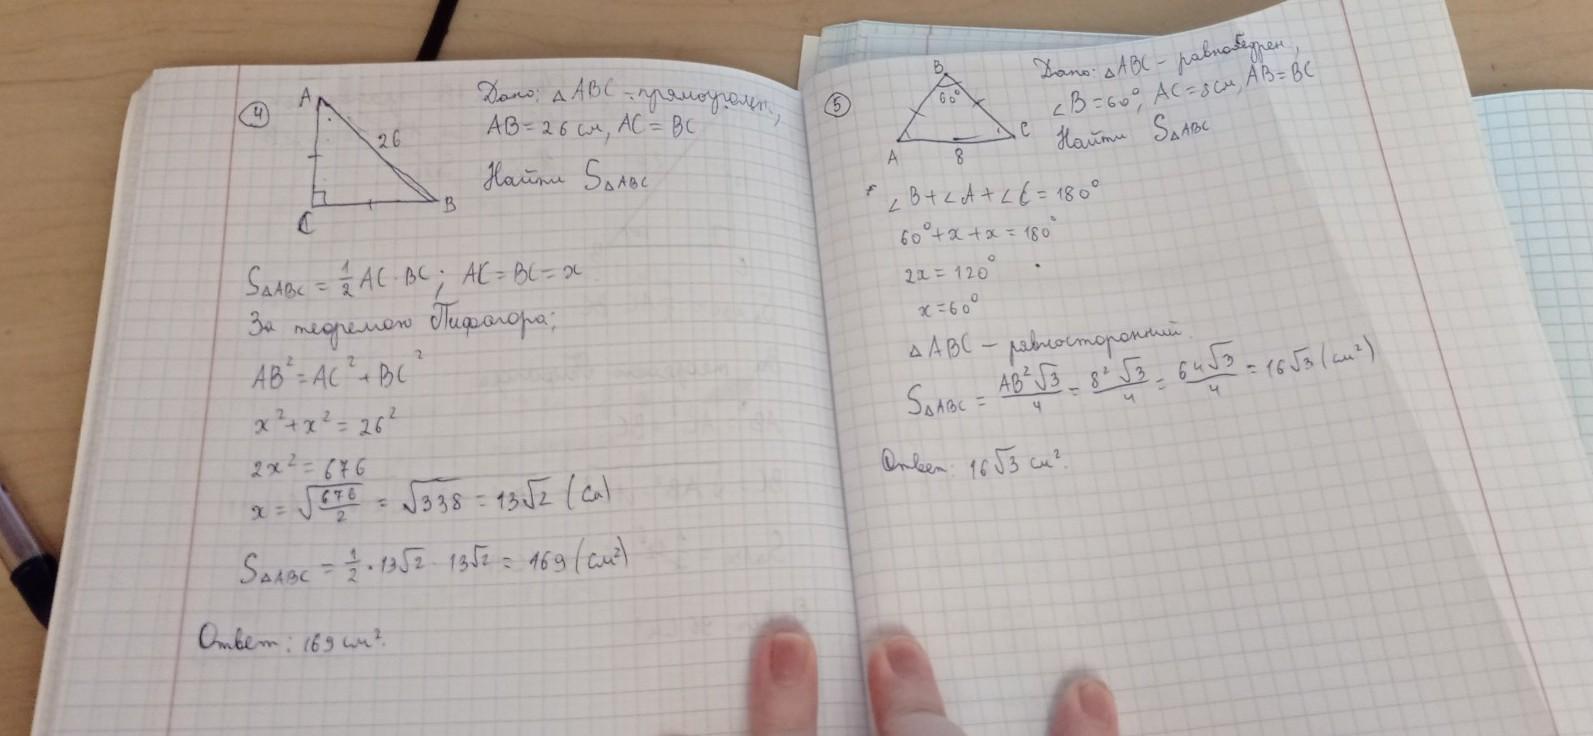 4
A
26
C
B
Дано: △ABC - прямоуголен,
AB = 26 см, AC = BC
Найти S△ABC
S△ABC = 1/2 AC · BC; AC = BC = x
За теоремою Пифагора:
AB² = AC² + BC²
x² + x² = 26²
2x² = 676
x = √(676/2) = √338 = 13√2 (см)
S△ABC = 1/2 · 13√2 · 13√2 = 169 (см²)
Ответ: 169 см².
5
B
60°
A
8
C
Дано: △ABC - равнобедрен,
∠B = 60°, AC = 8 см, AB = BC
Найти S△ABC
∠B + ∠A + ∠C = 180°
60° + x + x = 180°
2x = 120°
x = 60°
△ABC - равносторонний.
S△ABC = AB²√3/4 = 8²√3/4 = 64√3/4 = 16√3 (см²)
Ответ: 16√3 см².